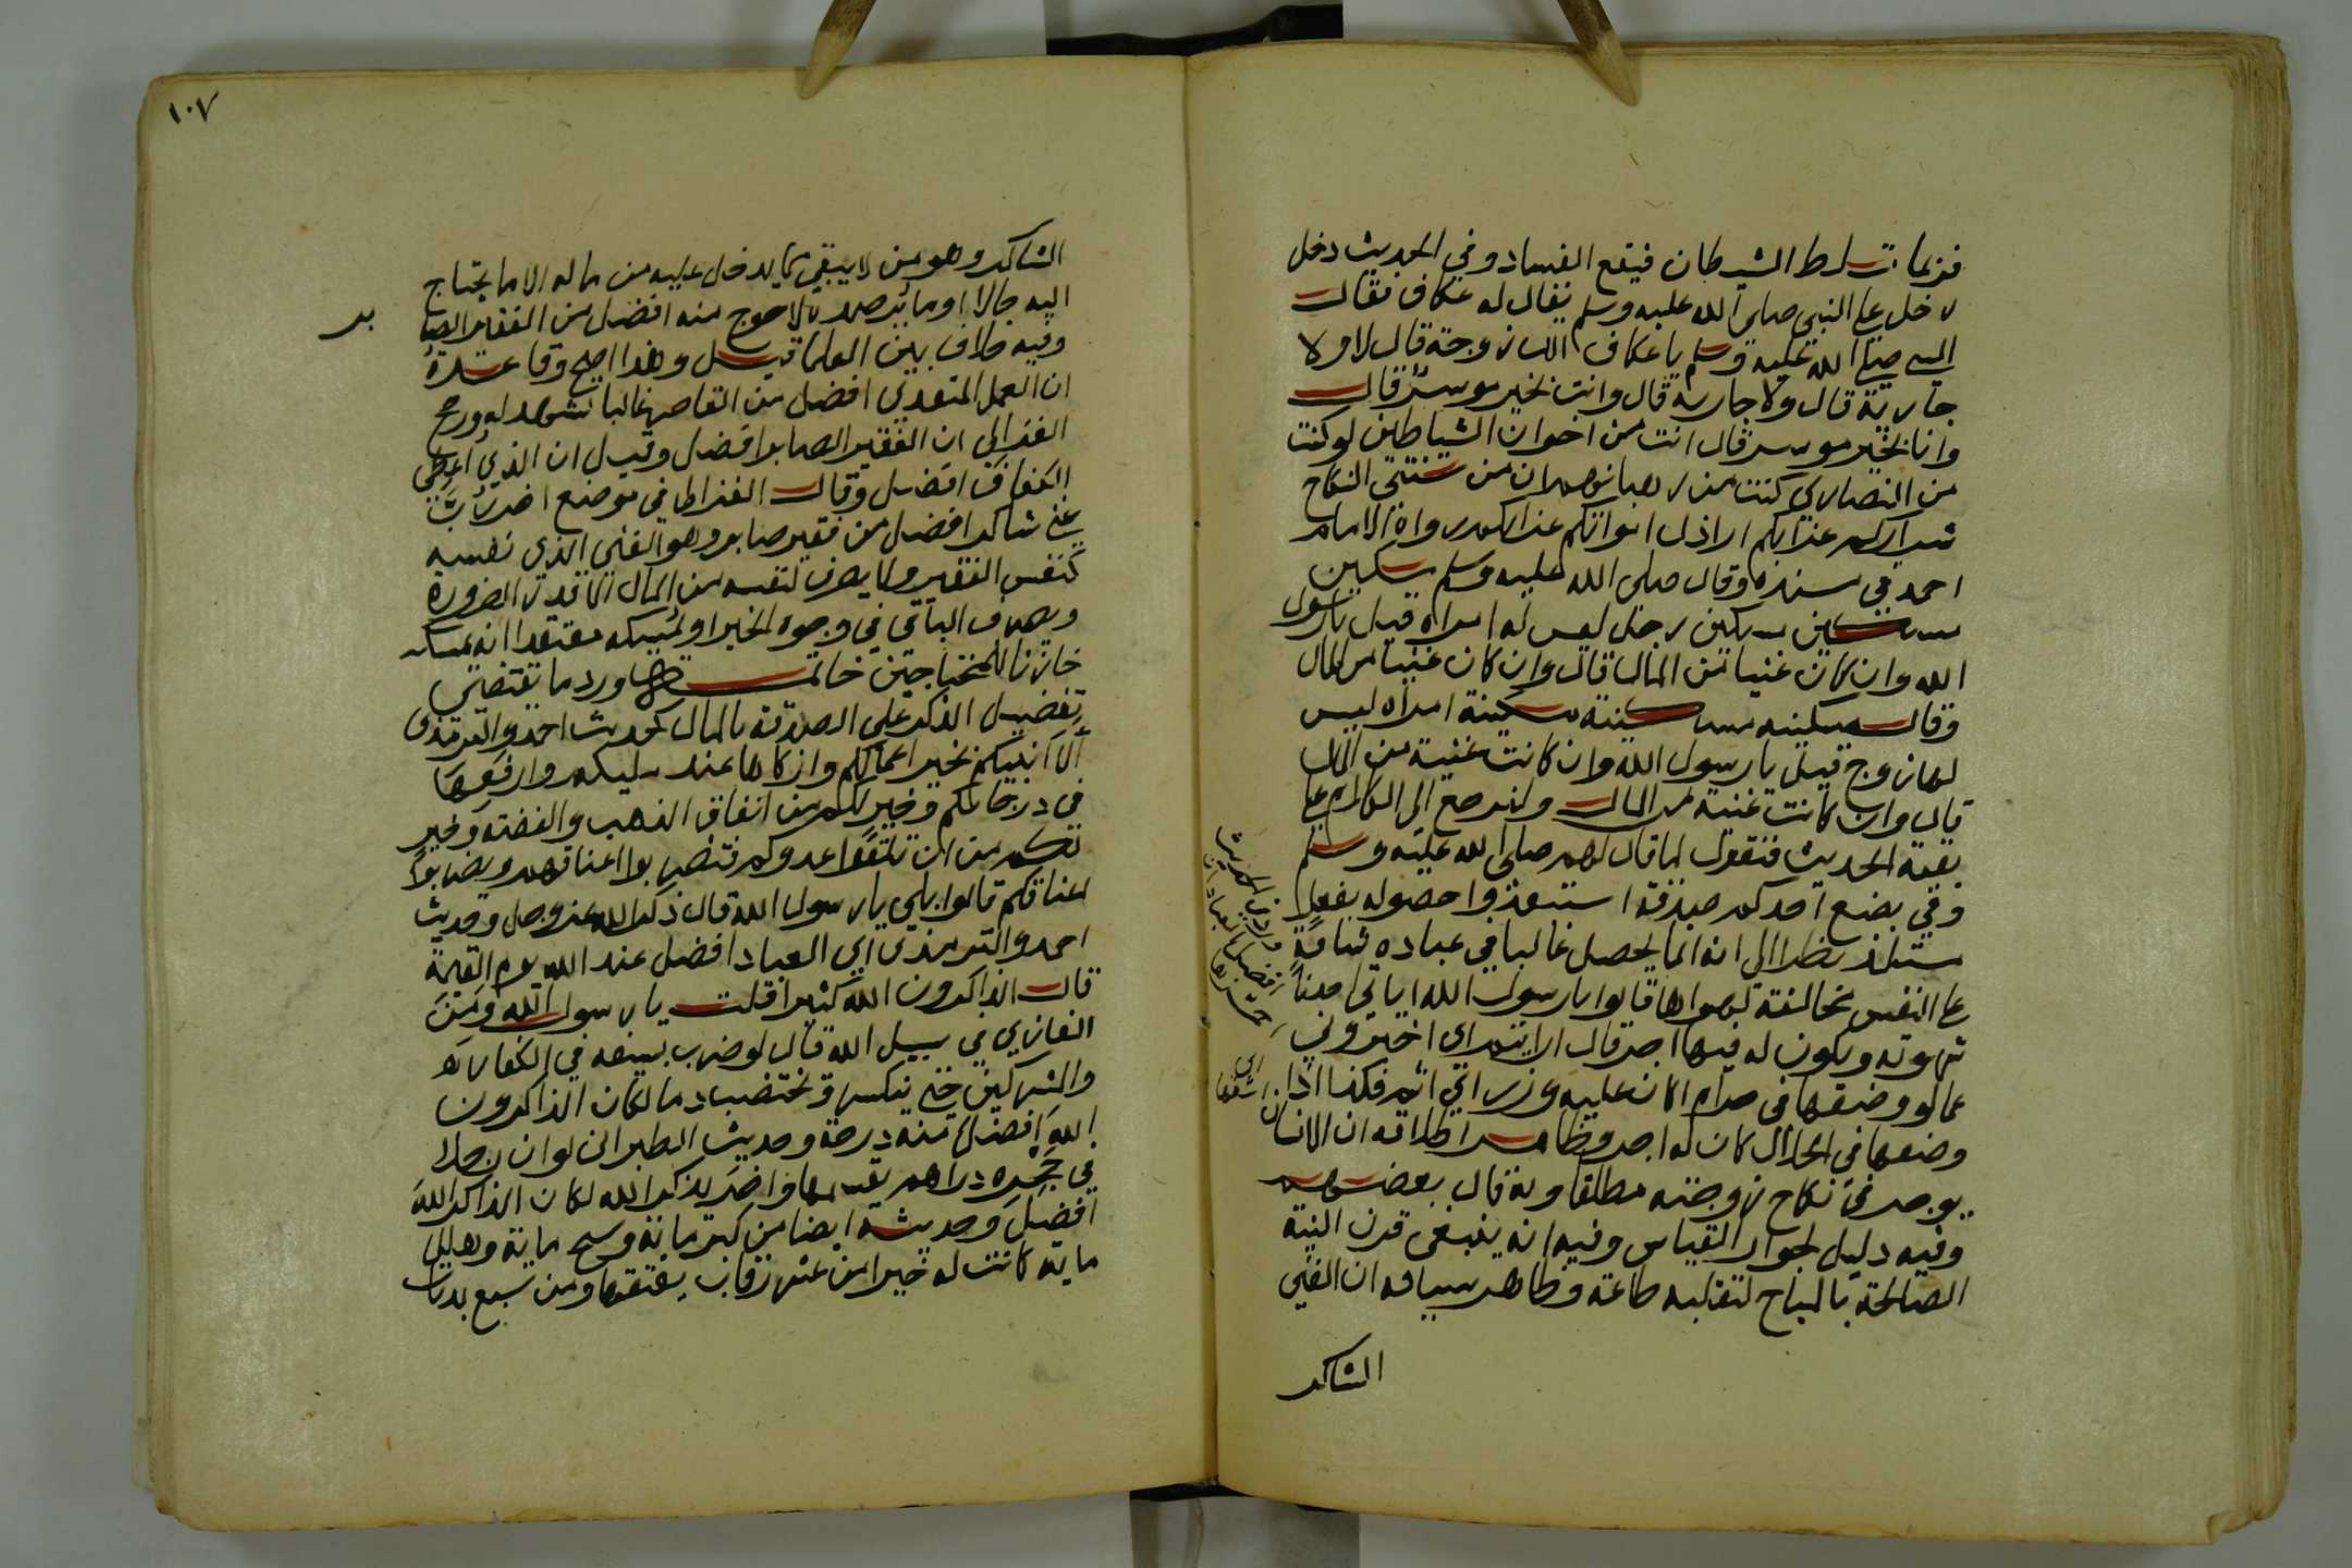 فربما تسلط الشيطان فيقع الفساد وفي الحديث دخل
رجل على النبي صلى الله عليه وسلم يقال له عكاف فقال
النبي صلى الله عليه وسلم يا عكاف الك زوجة قال لا ولا
جارية قال ولا جاريه قال وانت بخير موسر قال
وانا بخير موسر قال انت من اخوان الشياطين لو كنت
من النصارى كنت من رهبانهم ان من سنتي النكاح
شراركم عزابكم اراذل امواتكم عزابكم رواه الامام
احمد في مسنده وقال صلى الله عليه وسلم مسكين
مسكين مسكين رجل ليس له امراه قيل يا رسول
الله وان كان غنيا من المال قال وان كان غنيا من المال
وقال مسكينه مسكينة مسكينة امراه ليس
لها زوج قيل يا رسول الله وان كانت غنية من المال
قال وان كانت غنية من المال ولنرجع الى الكلام على
بقية الحديث فنقول لما قال لهم صلى الله عليه وسلم
وفي بضع احدكم صدقة استبعدوا حصوله بفعل
مستلذ نظرا الى انه انما يحصل غالبا في عباده شاقة
على النفس مخالفة لهواها قالوا يا رسول الله اياتي احدنا
شهوته ويكون له فيها اجر قال ارايتم اي اخبروني
عما لو وضعها في حرام اكان عليه وزر اي اثم فكذا اذا
وضعها في الحلال كان له اجر وظاهر اطلاقه ان الانسان
يوجر في نكاح زوجته مطلقا وبه قال بعضهم
وفيه دليل لجواز القياس وفيه انه ينبغي قرن النية
الصالحة بالمباح لتقلبه طاعة وظاهر سياقه ان الغني
الشاكر
١٠٧
الشاكر وهو من لا يبقي مما يدخل عليه من ماله الا ما يحتاج
اليه حالا او ما يرصده لاحوج منه افضل من الفقير الصا
بر
وفيه خلاف بين العلما قيل وهذا اصح وقاعدة
ان العمل المتعدي افضل من القاصر غالبا تشهد له ورجح
الغزالي ان الفقير الصابر افضل وقيل ان الذي اعطي
الكفاف افضل وقال الغزالي في موضع اخر رب
غني شاكر افضل من فقير صابر وهو الغني الذي نفسه
كنفس الفقير ولا يصرف لنفسه من المال الا قدر الضرورة
ويصرف الباقي في وجوه الخير او يمسكه معتقدا انه يمسكه
خازنا للمحتاجين خاتمة ورد ما يقتضي
تفضيل الذكر على الصدقة بالمال كحديث احمد والترمذي
الا انبيكم بخير اعمالكم وازكاها عند مليككم وارفعها
في درجاتكم وخير لكم من انفاق الذهب والفضة وخير
لكم من ان تلقوا عدوكم فتضربوا اعناقهم ويضربوا
اعناقكم قالوا بلى يا رسول الله قال ذكر الله عز وجل وحديث
احمد والترمذي اي العباد افضل عند الله يوم القيمة
قال الذاكرون الله كثيرا قلت يا رسول الله ومن
الغازي في سبيل الله قال لو ضرب بسيفه في الكفار
والمشركين حتى ينكسر وتختضب دما لكان الذاكرون
الله افضل منه درجة وحديث الطبراني لو ان رجلا
في حجره دراهم يقسمها واخر يذكر الله لكان الذاكر الله
افضل وحديثه ايضا من كبر ماية وسبح ماية وهلل
ماية كانت له خيرا من عشر رقاب يعتقها ومن سبع بدنات